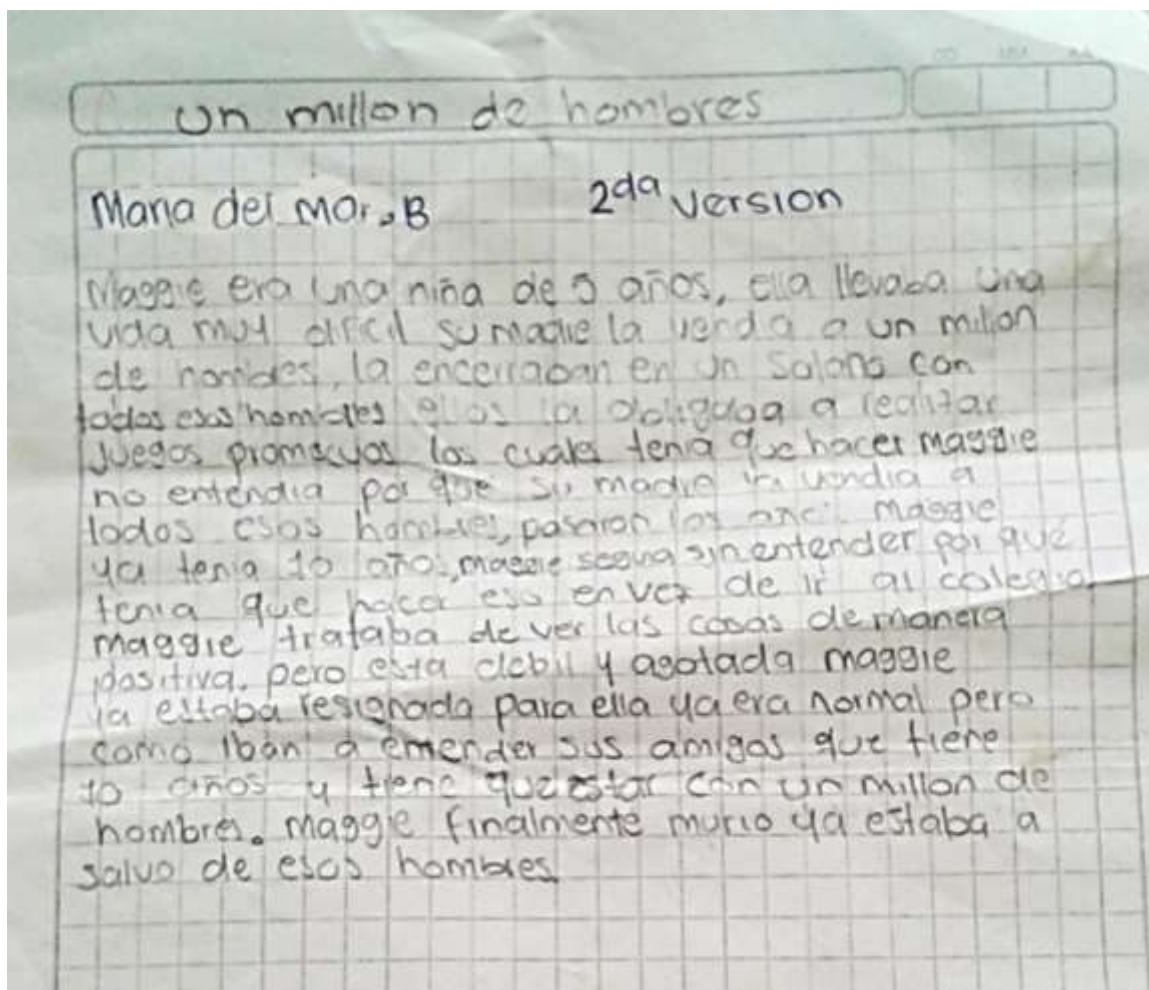 un millon de hombres
Maria del mar. B 2da version
Maggie era una niña de 5 años, ella llevaba una
vida muy dificil su madre la vendia a un millon
de hombres, la encerraban en un Solano con
todos esos hombres ellos la obligaba a realizar
Juegos promiscuos los cuales tenia que hacer maggie
no entendia por que su madre la vendia a
todos esos hombres, pasaron los años maggie
ya tenia 10 años, maggie seguia sin entender por que
tenia que hacer eso en vez de ir al colegio
maggie trataba de ver las cosas de manera
positiva. pero esta debil y agotada maggie
ya estaba resignada para ella ya era normal pero
como iban a entender sus amigas que tiene
10 años y tiene que estar con un millon de
hombres. maggie finalmente murio ya estaba a
salvo de esos hombres